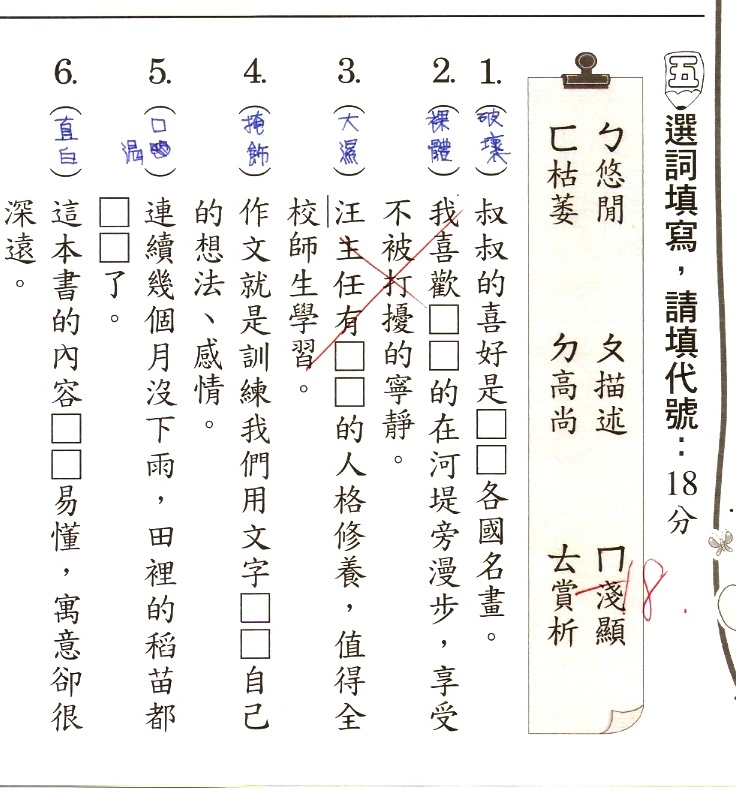 五、選詞填寫，請填代號：18分
ㄅ悠閒 ㄆ描述 ㄇ淺顯
ㄈ枯萎 ㄉ高尚 ㄊ賞析
-18
1.(破壞)叔叔的喜好是□□各國名畫。
2.(裸體)我喜歡□□的在河堤旁漫步，享受
不被打擾的寧靜。
3.(大濕)汪主任有□□的人格修養，值得全
校師生學習。
4.(掩飾)作文就是訓練我們用文字□□自己
的想法、感情。
5.(口 温)連續幾個月沒下雨，田裡的稻苗都
□□了。
6.(直白)這本書的內容□□易懂，寓意卻很
深遠。